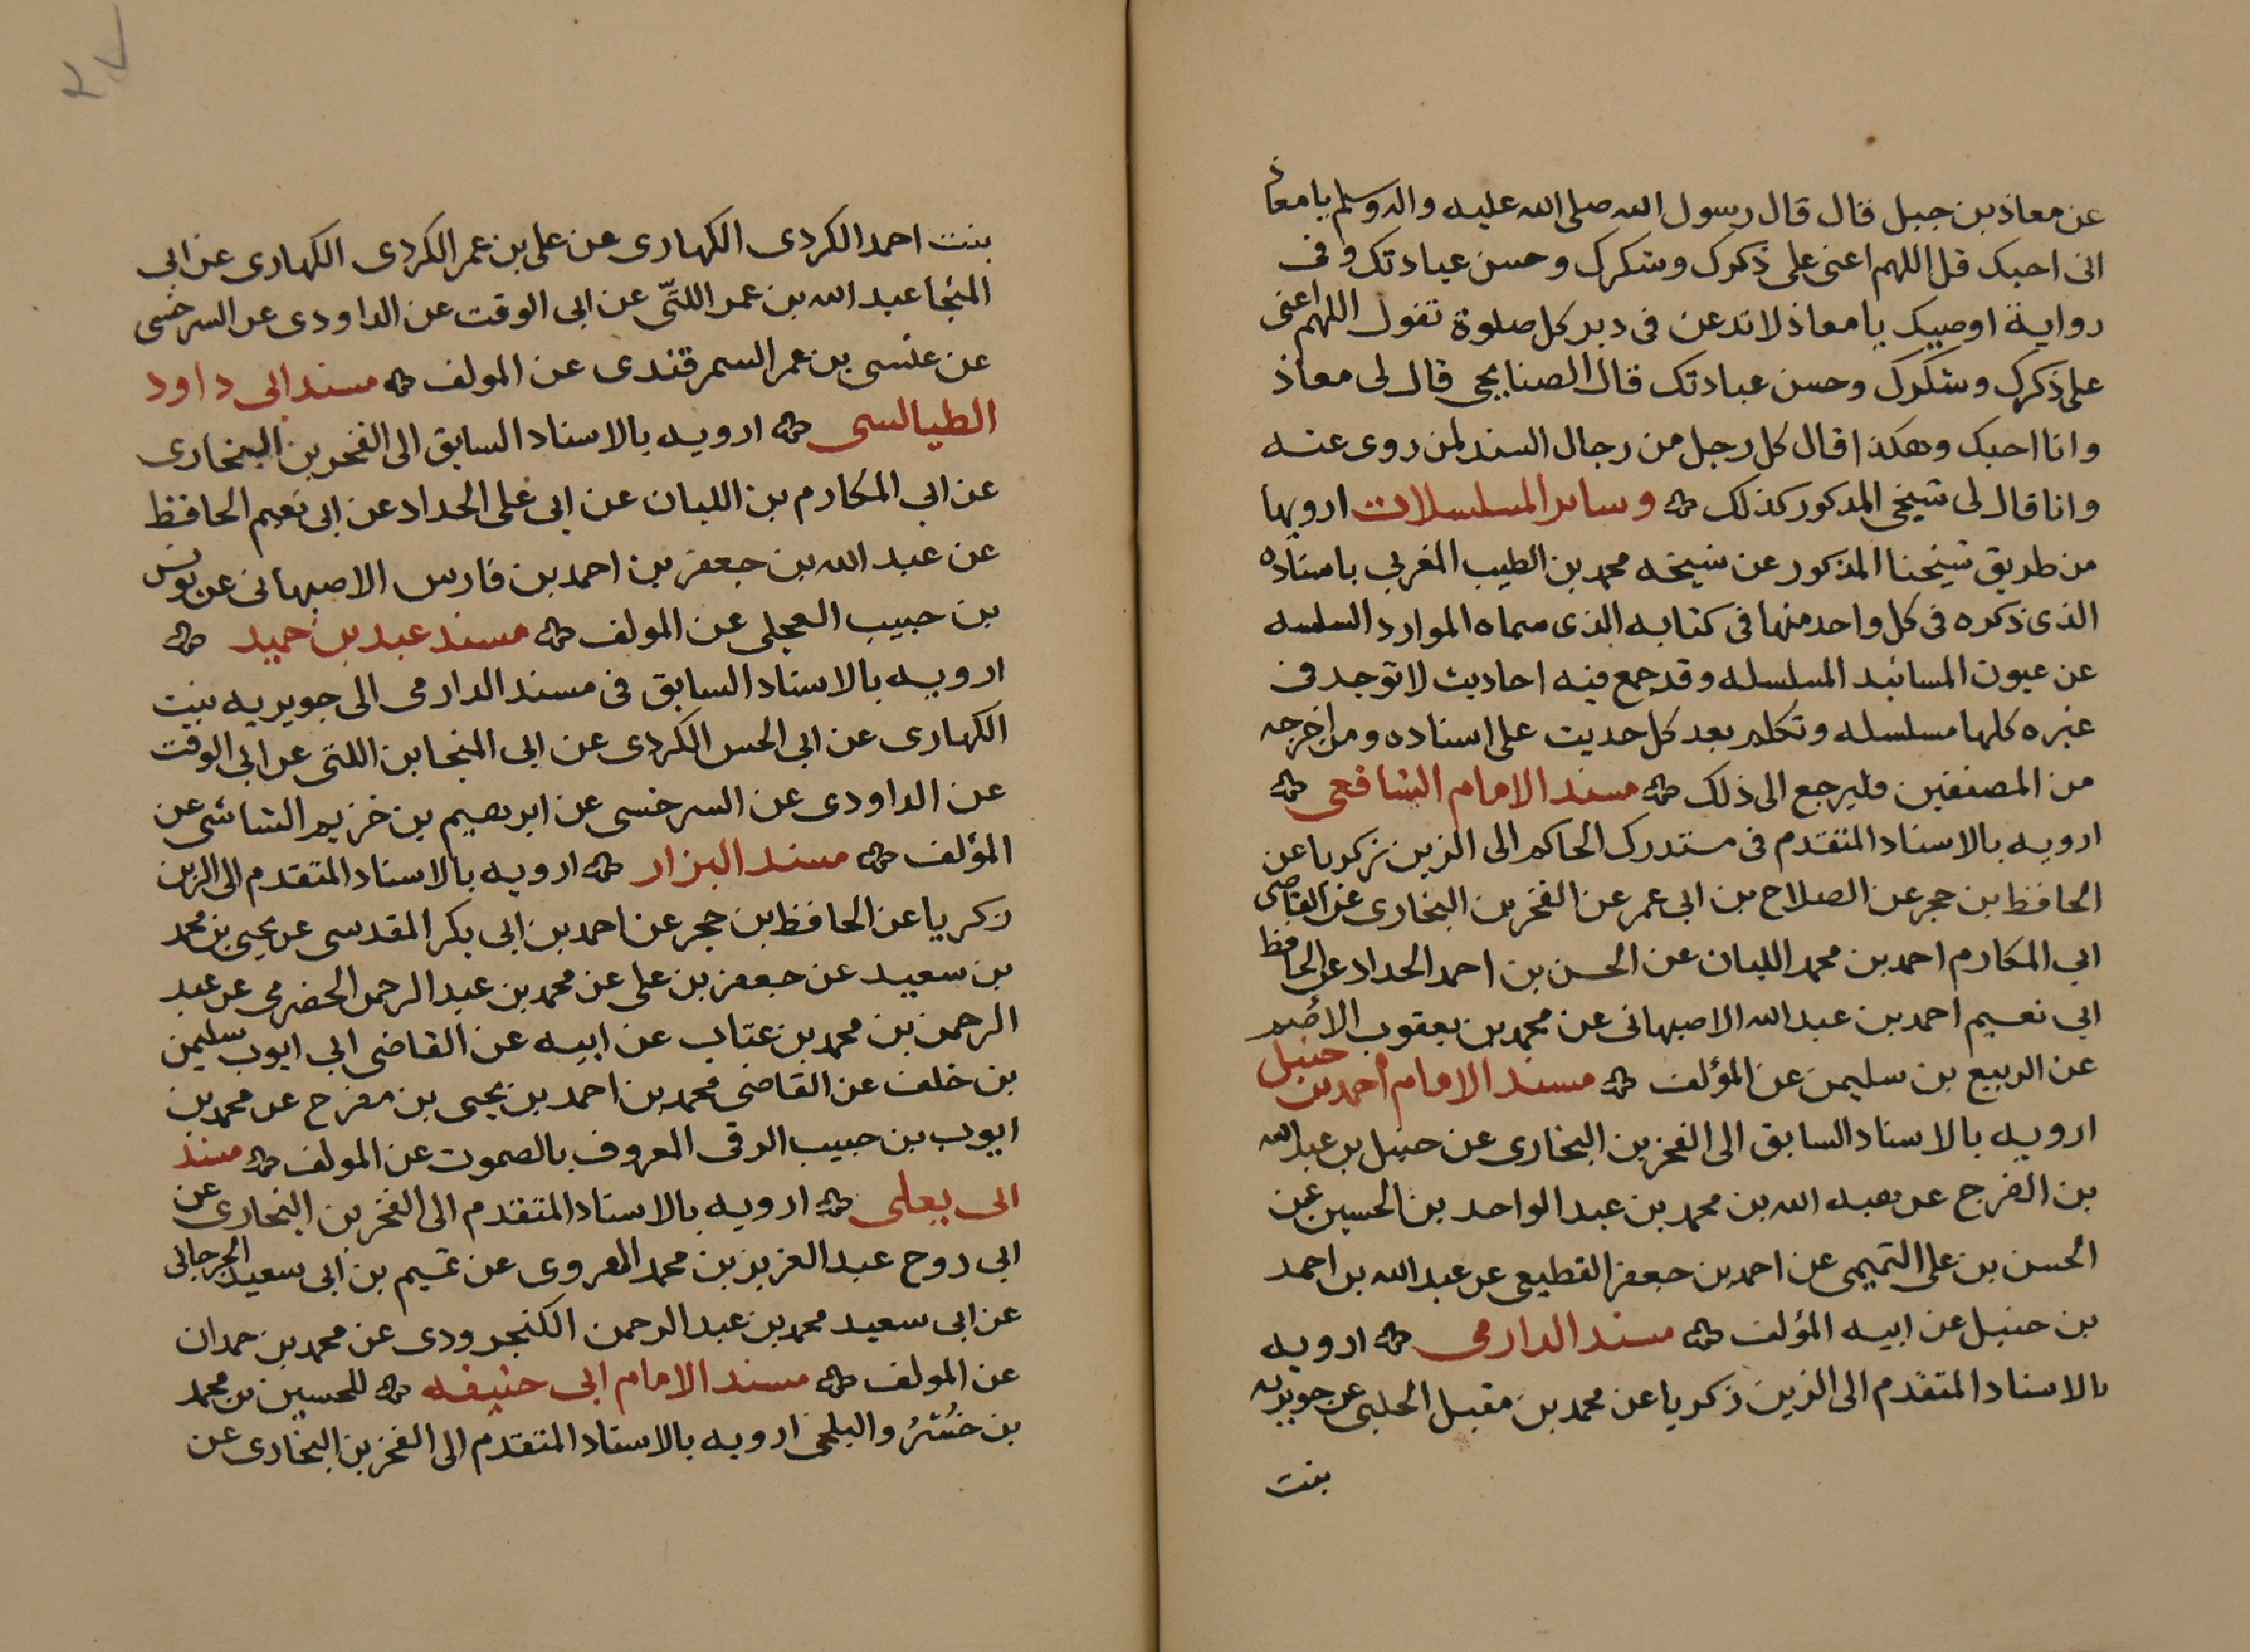 عن معاذ بن جبل قال قال رسول الله صلى الله عليه واله وسلم يا معاذ
انى احبك قل اللهم اعنى على ذكرك وشكرك وحسن عبادتك وفى
رواية اوصيك يا معاذ لا تدعن فى دبر كل صلوة تقول اللهم اعنى
على ذكرك وشكرك وحسن عبادتك قال الصنابحى قال لى معاذ
وانا احبك وهكذا قال كل رجل من رجال السند لمن روى عنه
وانا قال لى شيخى المذكور كذلك وساير المسلسلات ارويها
من طريق شيخنا المذكور عن شيخه محمد بن الطيب المغربى باسناده
الذى ذكره فى كل واحد منها فى كتابه الذى سماه الموارد السلسه
عن عيون المسانيد المسلسله وقد جمع فيه احاديث لا توجد فى
غيره كلها مسلسله وتكلم بعد كل حديث على اسناده ومن اخرجه
من المصنفين فليرجع الى ذلك مسند الامام الشافعى
ارويه بالاسناد المتقدم فى مستدرك الحاكم الى الزين زكريا عن
الحافظ بن حجر عن الصلاح بن ابى عمر عن الفخر بن البخارى عن القاضى
ابى المكارم احمد بن محمد اللبان عن الحسن بن احمد الحداد عن الحافظ
ابى نعيم احمد بن عبد الله الاصبهانى عن محمد بن يعقوب الاصم
عن الربيع بن سليمن عن المؤلف مسند الامام احمد بن حنبل
ارويه بالاسناد السابق الى الفخر بن البخارى عن حنبل بن عبد الله
بن الفرج عن هبه الله بن محمد بن عبد الواحد بن الحسين عن
الحسن بن على التميمى عن احمد بن جعفر القطيعى عن عبد الله بن احمد
بن حنبل عن ابيه المؤلف مسند الدارمى ارويه
بالاسناد المتقدم الى الزين زكريا عن محمد بن مقبل الحلبى عن جويريه
بنت
بنت احمد الكردى الكهارى عن على بن عمر الكردى الكهارى عن ابى
المنجا عبد الله بن عمر اللتّى عن ابى الوقت عن الداودى عن السرخسى
عن عيسى بن عمر السمرقندى عن المولف مسند ابى داود
الطيالسى ارويه بالاسناد السابق الى الفخر بن البخارى
عن ابى المكارم بن اللبان عن ابى على الحداد عن ابى نعيم الحافظ
عن عبد الله بن جعفر بن احمد بن فارس الاصبهانى عن يونس
بن حبيب العجلى عن المولف مسند عبد بن حميد
ارويه بالاسناد السابق فى مسند الدارمى الى جويريه بنت
الكهارى عن ابى الحسن الكردى عن ابى المنجا بن اللتى عن ابى الوقت
عن الداودى عن السرخسى عن ابرهيم بن خزيم الشاشى عن
المؤلف مسند البزار ارويه بالاسناد المتقدم الى الزين
زكريا عن الحافظ بن حجر عن احمد بن ابى بكر المقدسى عن يحيى بن محمد
بن سعيد عن جعفر بن على عن محمد بن عبد الرحمن الحضرمى عن عبد
الرحمن بن محمد بن عتاب عن ابيه عن القاضى ابى ايوب سليمن
بن خلف عن القاضى محمد بن احمد بن يحيى بن مفرج عن محمد بن
ايوب بن حبيب الرقى المعروف بالصموت عن المولف مسند
ابى يعلى ارويه بالاسناد المتقدم الى الفخر بن البخارى عن
ابى روح عبد العزيز بن محمد الهروى عن تميم بن ابى سعيد الجرجانى
عن ابى سعيد محمد بن عبد الرحمن الكنجرودى عن محمد بن حمدان
عن المولف مسند الامام ابى حنيفه للحسين بن محمد
بن خُسْرُو البلخى ارويه بالاسناد المتقدم الى الفخر بن البخارى عن